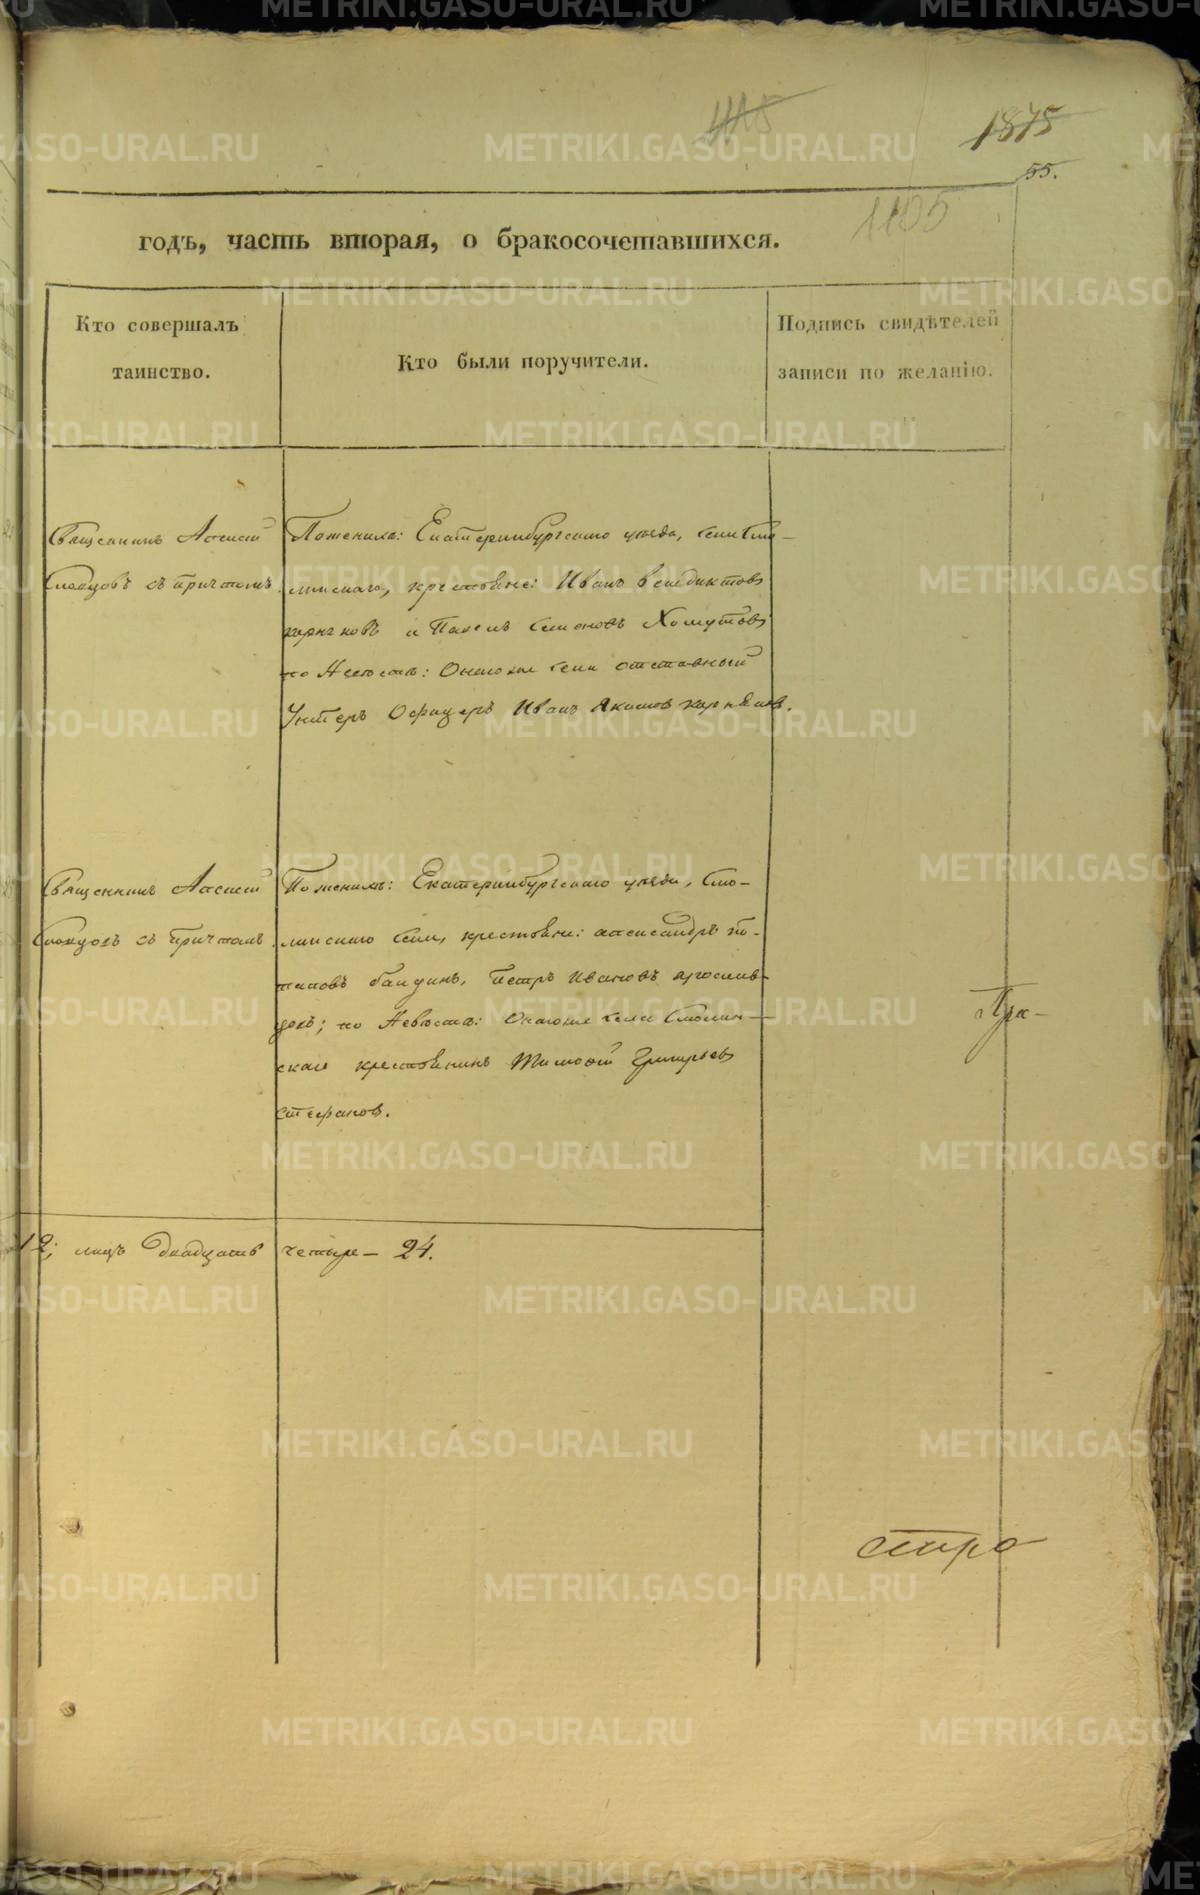 1875
55.
1105
годъ, часть вторая, о бракосочетавшихся.
Кто совершалъ
таинство.
Кто были поручители.
Подпись свидѣтелей
записи по желанію.
Священникъ Алексѣй
съ причтомъ.
По женихѣ: Екатеринбургскаго уѣзда, села Смо-
линскаго, крестьяне: Иванъ Венедиктовъ
и Павелъ Семеновъ Хомутовъ
по Невѣстѣ: Онаго же села отставный
Унтеръ Офицеръ Иванъ Якимовъ
Священникъ Алексѣй
съ причтомъ.
По женихѣ: Екатеринбургскаго уѣзда, Смо-
линскаго села, крестьяне: Александръ По-
таповъ Петръ Ивановъ
по Невѣстѣ: Онаго же села Смолин-
скаго крестьянинъ Тимофей Григорьевъ
12; лицъ двадцать четыре — 24.
METRIKI.GASO-URAL.RU